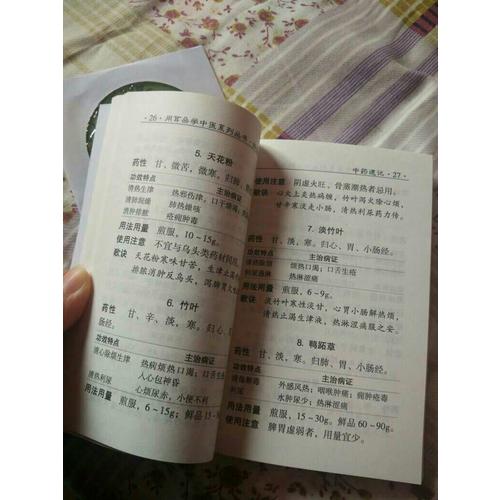 ·26·用耳朵学中医系列丛书
5. 天花粉
药性 甘、微苦，微寒，归肺
功效特点 主治病证
清热生津 热邪伤津，口干
清肺润燥 肺热燥咳
消肿排脓 疮痈肿毒
用法用量 煎服，10~15g；
使用注意 不宜与乌头类药材同用
歌诀 天花粉寒味甘苦，生津止渴
排脓消肿反乌头，
6. 竹叶
药性 甘、辛、淡，寒，归心、
肠经。
功效特点 主治病证
清心除烦生津 热病烦热口渴；口舌生
人心包神昏
清热利尿 心烦尿赤，小便不利
用法用量 煎服，6~15g；鲜品15~
中药速记·27·
使用注意 阴虚火旺、骨蒸潮热者忌用。
歌诀 心火上炎热病缠，竹叶泻火除心烦，
甘辛寒淡走小肠，清热利尿药力传。
7. 淡竹叶
药性 甘、淡，寒。归心、胃、小肠经。
功效特点 主治病证
清热除烦 烦热口渴；口舌生疮
利尿通淋 热淋涩痛
用法用量 煎服，6~9g。
歌诀 淡竹叶寒性淡甘，心胃小肠解热烦，
清热止渴生津液，热淋涩痛服之安。
8. 鸭跖草
药性 甘、淡，寒。归肺、胃、小肠经。
功效特点 主治病证
清热解毒 外感风热；咽喉肿痛；痈肿疮毒
水肿尿少；热淋涩痛
用法用量 煎服，15~30g。鲜品60~90g。
使用注意 脾胃虚弱者，用量宜少。